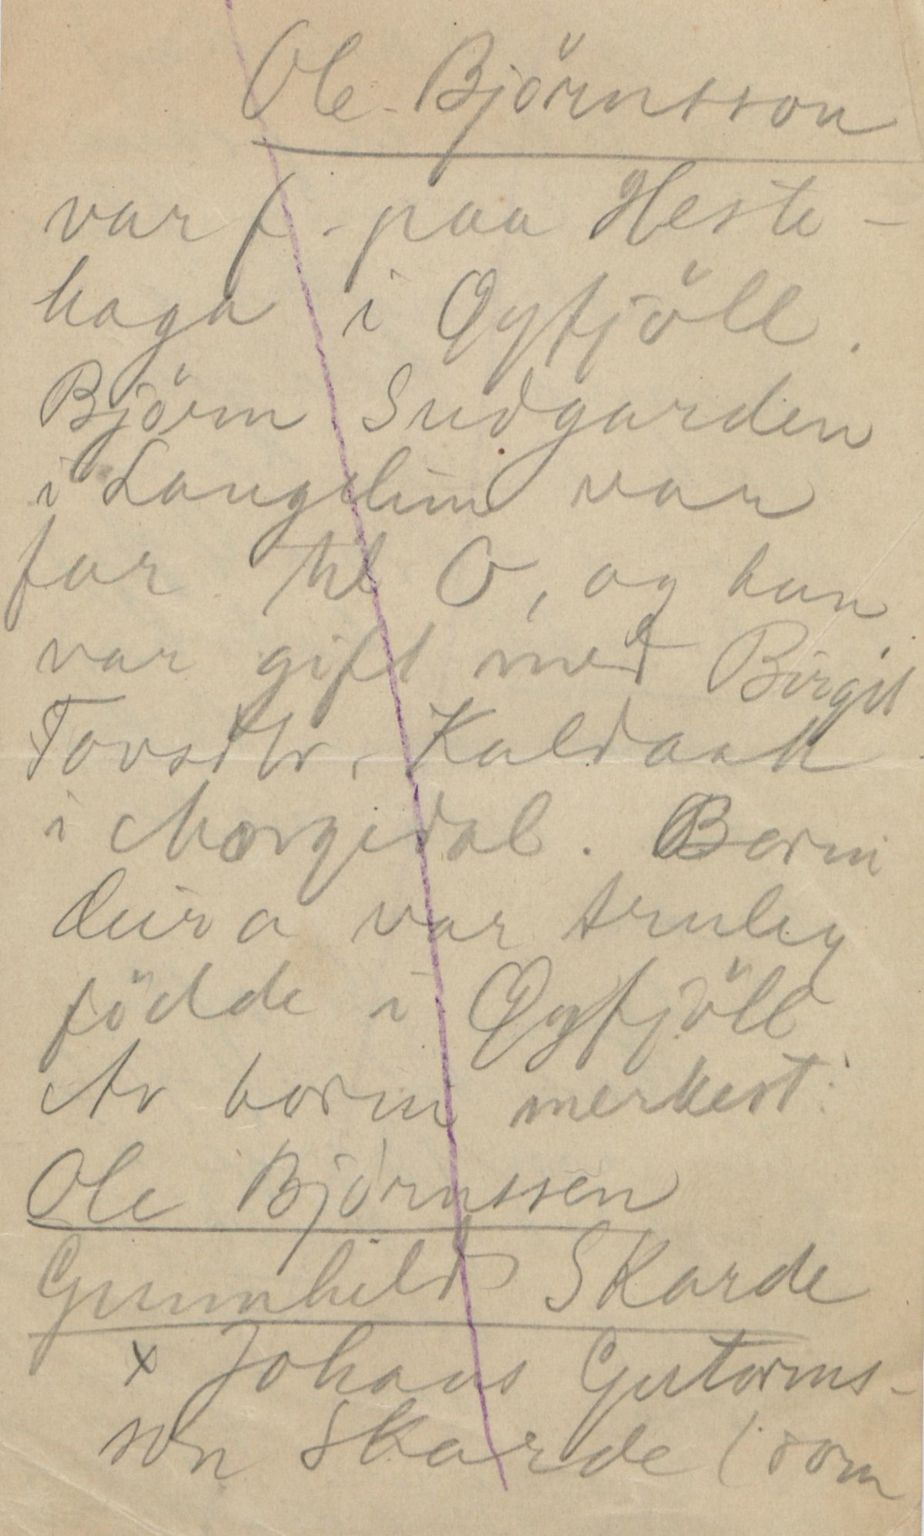 Ole Björnsson
var f. paa Heste-
haga i Öyfjöll.
Björn Sudgarden
i Langelim var
far til O, og han
var gift med Birgit
Tovsdtr. Kaldaak
i Morgedal. Borni
deira var truleg
födde i Öyfjöll
Av borni merkest:
Ole Björnssen
Gunnhild Skarde
x Johans Gutorms-
son Skarde (som